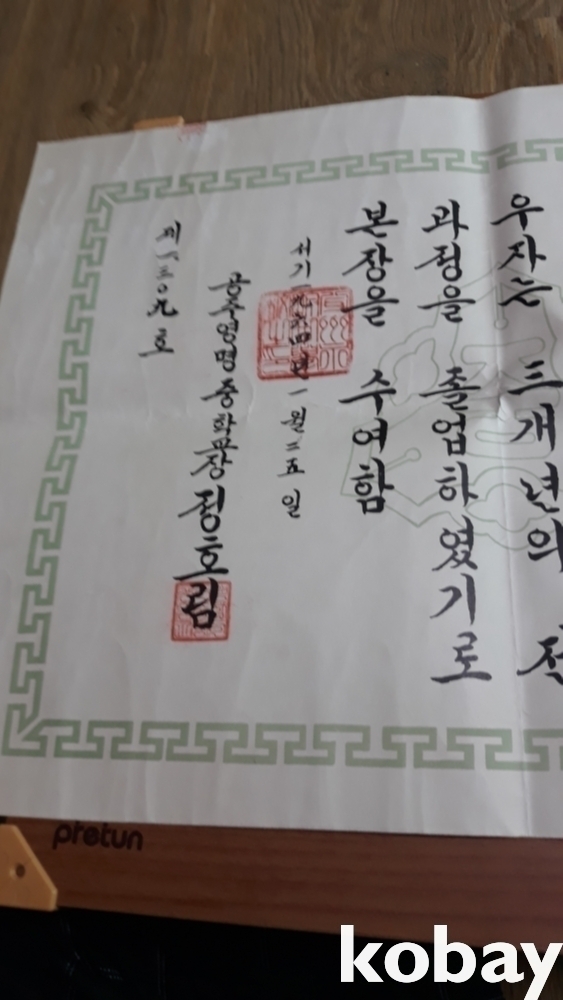 우자는 삼개년의 전
과정을 졸업하였기로
본장을 수여함
서기一九六四년一월二五일
공주영명중학교장 정호림
제一三०九호
pretun
kobay